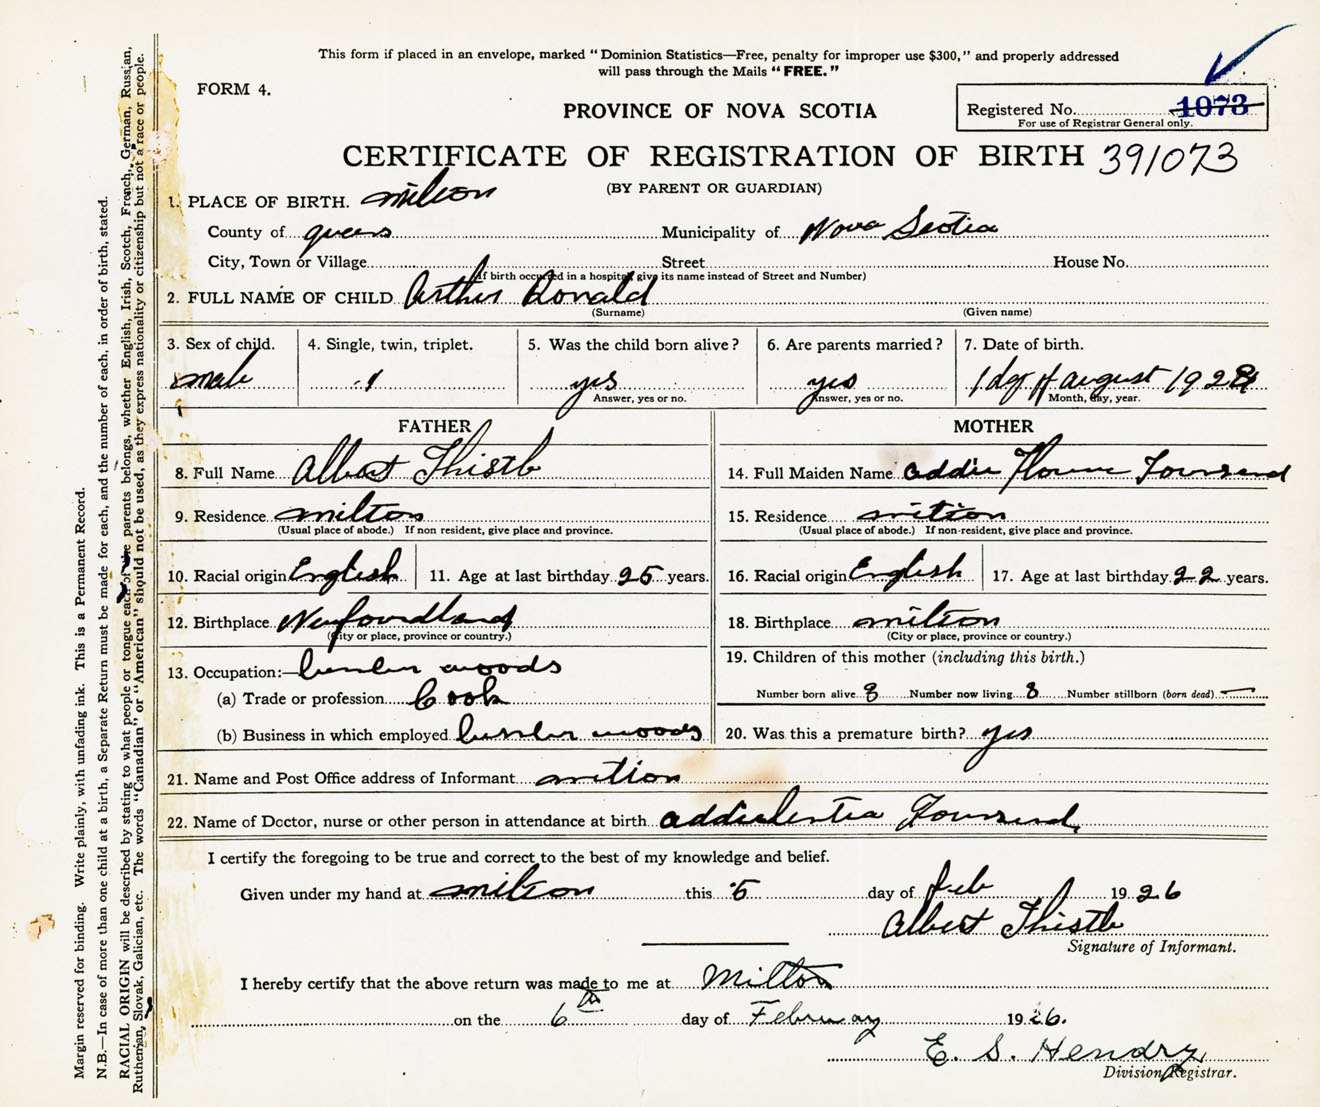 This form if placed in an envelope, marked "Dominion Statistics—Free, penalty for improper use $300," and properly addressed
will pass through the Mails "FREE."
FORM 4.
PROVINCE OF NOVA SCOTIA
Registered No. 1073
For use of Registrar General only.
CERTIFICATE OF REGISTRATION OF BIRTH 391073
(BY PARENT OR GUARDIAN)
1. PLACE OF BIRTH. milton
County of queens Municipality of Nova Scotia
City, Town or Village Street House No.
(If birth occurred in a hospital give its name instead of Street and Number)
2. FULL NAME OF CHILD Arthur Donald
(Surname) (Given name)
3. Sex of child. 4. Single, twin, triplet. 5. Was the child born alive? 6. Are parents married? 7. Date of birth.
male 1 yes yes 1 day of august 192
Answer, yes or no. Answer, yes or no. Month, day, year.
FATHER MOTHER
8. Full Name Albert Thistle 14. Full Maiden Name addie Townsend
9. Residence milton 15. Residence milton
(Usual place of abode.) If non resident, give place and province. (Usual place of abode.) If non-resident, give place and province.
10. Racial origin English 11. Age at last birthday 25 years. 16. Racial origin English 17. Age at last birthday 22 years.
12. Birthplace Newfoundland 18. Birthplace milton
(City or place, province or country.) (City or place, province or country.)
19. Children of this mother (including this birth.)
13. Occupation:— lumber woods
(a) Trade or profession Cook Number born alive 8 Number now living 8 Number stillborn (born dead) —
(b) Business in which employed lumber woods 20. Was this a premature birth? yes
21. Name and Post Office address of Informant milton
22. Name of Doctor, nurse or other person in attendance at birth Townsend
I certify the foregoing to be true and correct to the best of my knowledge and belief.
Given under my hand at milton this 5 day of feb 1926
Albert Thistle
Signature of Informant.
I hereby certify that the above return was made to me at Milton
on the 6th day of February 1926.
E. S. Hendry
Division Registrar.
Margin reserved for binding. Write plainly, with unfading ink. This is a Permanent Record.
N.B.—In case of more than one child at a birth, a Separate Return must be made for each, and the number of each, in order of birth, stated.
RACIAL ORIGIN will be described by stating to what people or tongue each of the parents belongs, whether English, Irish, Scotch, French, German, Russian,
Ruthenian, Slovak, Galician, etc. The words "Canadian" or "American" should not be used, as they express nationality or citizenship but not a race or people.